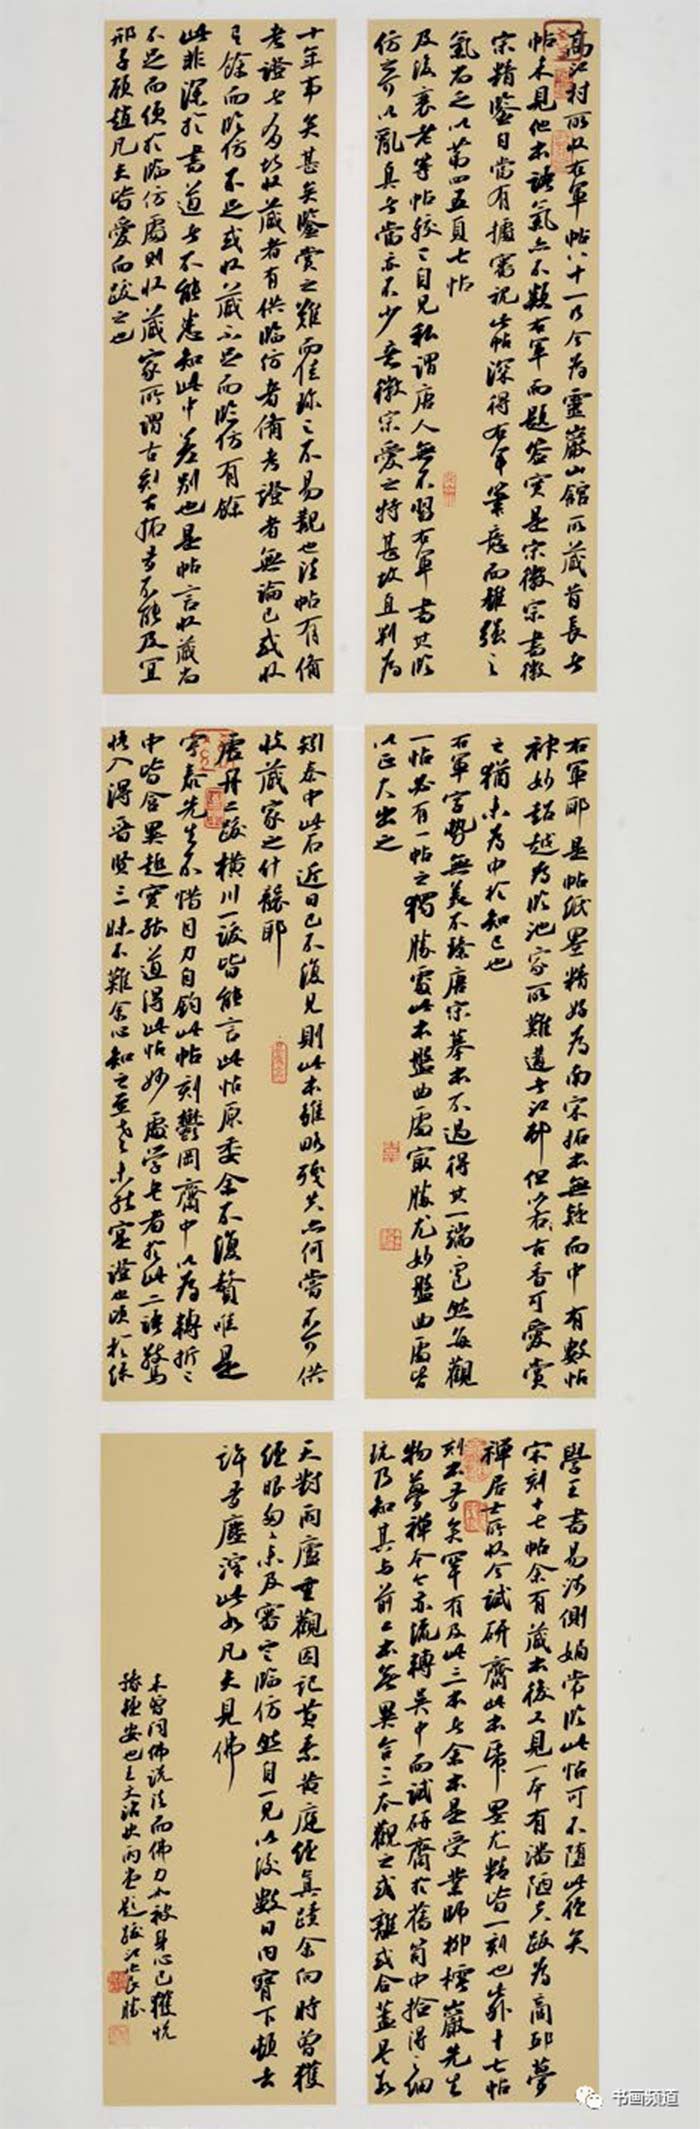 高江村所收右軍帖八十一乃今為靈巖山館所藏首長者
帖未見但本語氣亦不類右軍而題簽實是宋徽宗書徽
宗精鑒日當有據審視此帖深得右軍筆意而雄強之
氣右之以第四五頁七帖
及後裹老等帖較之自見私謂唐人無不習右軍書其臨
仿奇以亂真者當亦不少無徽宗愛之特甚故直判為
右軍耶是帖紙墨精好為南宋拓本無疑而中有數帖
神妙超越為臨池家所難遘者江邨但以古香可愛賞
之猶未為中於知己也
右軍字勢無美不臻唐宋摹本不過得其一端是然每觀
一帖必有一帖之獨勝處此本盤曲處最勝尤妙盤曲處皆
以正大出之
學王書易涉側媚常臨此帖可不墮此徑矣
宋刻十七帖余有藏本後又見一本有潘陋夫跋為商邱夢
禪居士所收今試研齋此本紙墨尤精皆一刻也此外十七帖
刻本吾矣罕有及此三本者余本是受業師柳樗巖先生
物夢禪本今亦流轉吳中而試研齋於舊笥中拾得之細
玩乃知其与前二本無異合三本觀之或離或合蓋是如
十年事矣甚矣鑒賞之難而佳珍之不易觀也法帖有備
考證者有收藏者有供臨仿者備考證者無論已或收
有餘而臨仿不足或收藏不足而臨仿有餘
此非深於書道者不能悉知此中差別也是帖言收藏而
不足而便於臨仿處則收藏家所謂古刻古拓者不能及宜
邢子愿趙凡夫皆愛而跋之也
刻秦中此石近日已不復見則此本雖略殘失亦何嘗不可供
收藏家之什襲耶
虛舟二跋橫川一跋皆能言此帖原委余不復贅唯是
寧泰先生不惜目力自鉤此帖刻鬱岡齋中以為轉折之
中皆含異趣實能道得此帖妙處學者於此二語驀
悟入得晉賢三昧不難會心知之
天對雨廬重觀因記黃素黃庭經真蹟余向時曾獲
經眼匆匆未及審定臨仿然自一見以後數日內寶下頓去
許書塵滓此如凡夫見佛
未曾聞佛說法而佛力加被身心已獲悅
豫極安也王文治